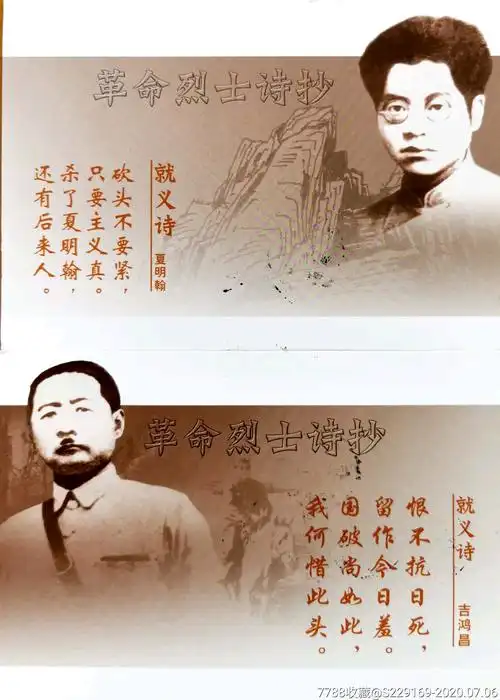 革命烈士诗抄
就义诗
夏明翰
砍头不要紧，
只要主义真。
杀了夏明翰，
还有后来人。
革命烈士诗抄
就义诗
吉鸿昌
恨不抗日死，
留作今日羞。
国破尚如此，
我何惜此头。
7788收藏@S229169-2020.07.06